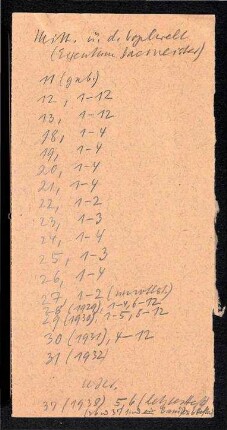 Mitt. ü. d. Vogelwelt
(Eigentum
11 (geb.)
12, 1-12
13, 1-12
18, 1-4
19, 1-4
20, 1-4
21, 1-4
22, 1-2
23, 1-3
24, 1-4
25, 1-3
26, 1-4
27, 1-2 (unvollst.)
28 (1929), 1-4, 6-12
29 (1930), 1-5, 8-12
30 (1931), 4-12
31 (1932)
37 (1938) 5,6 (letztes Heft)